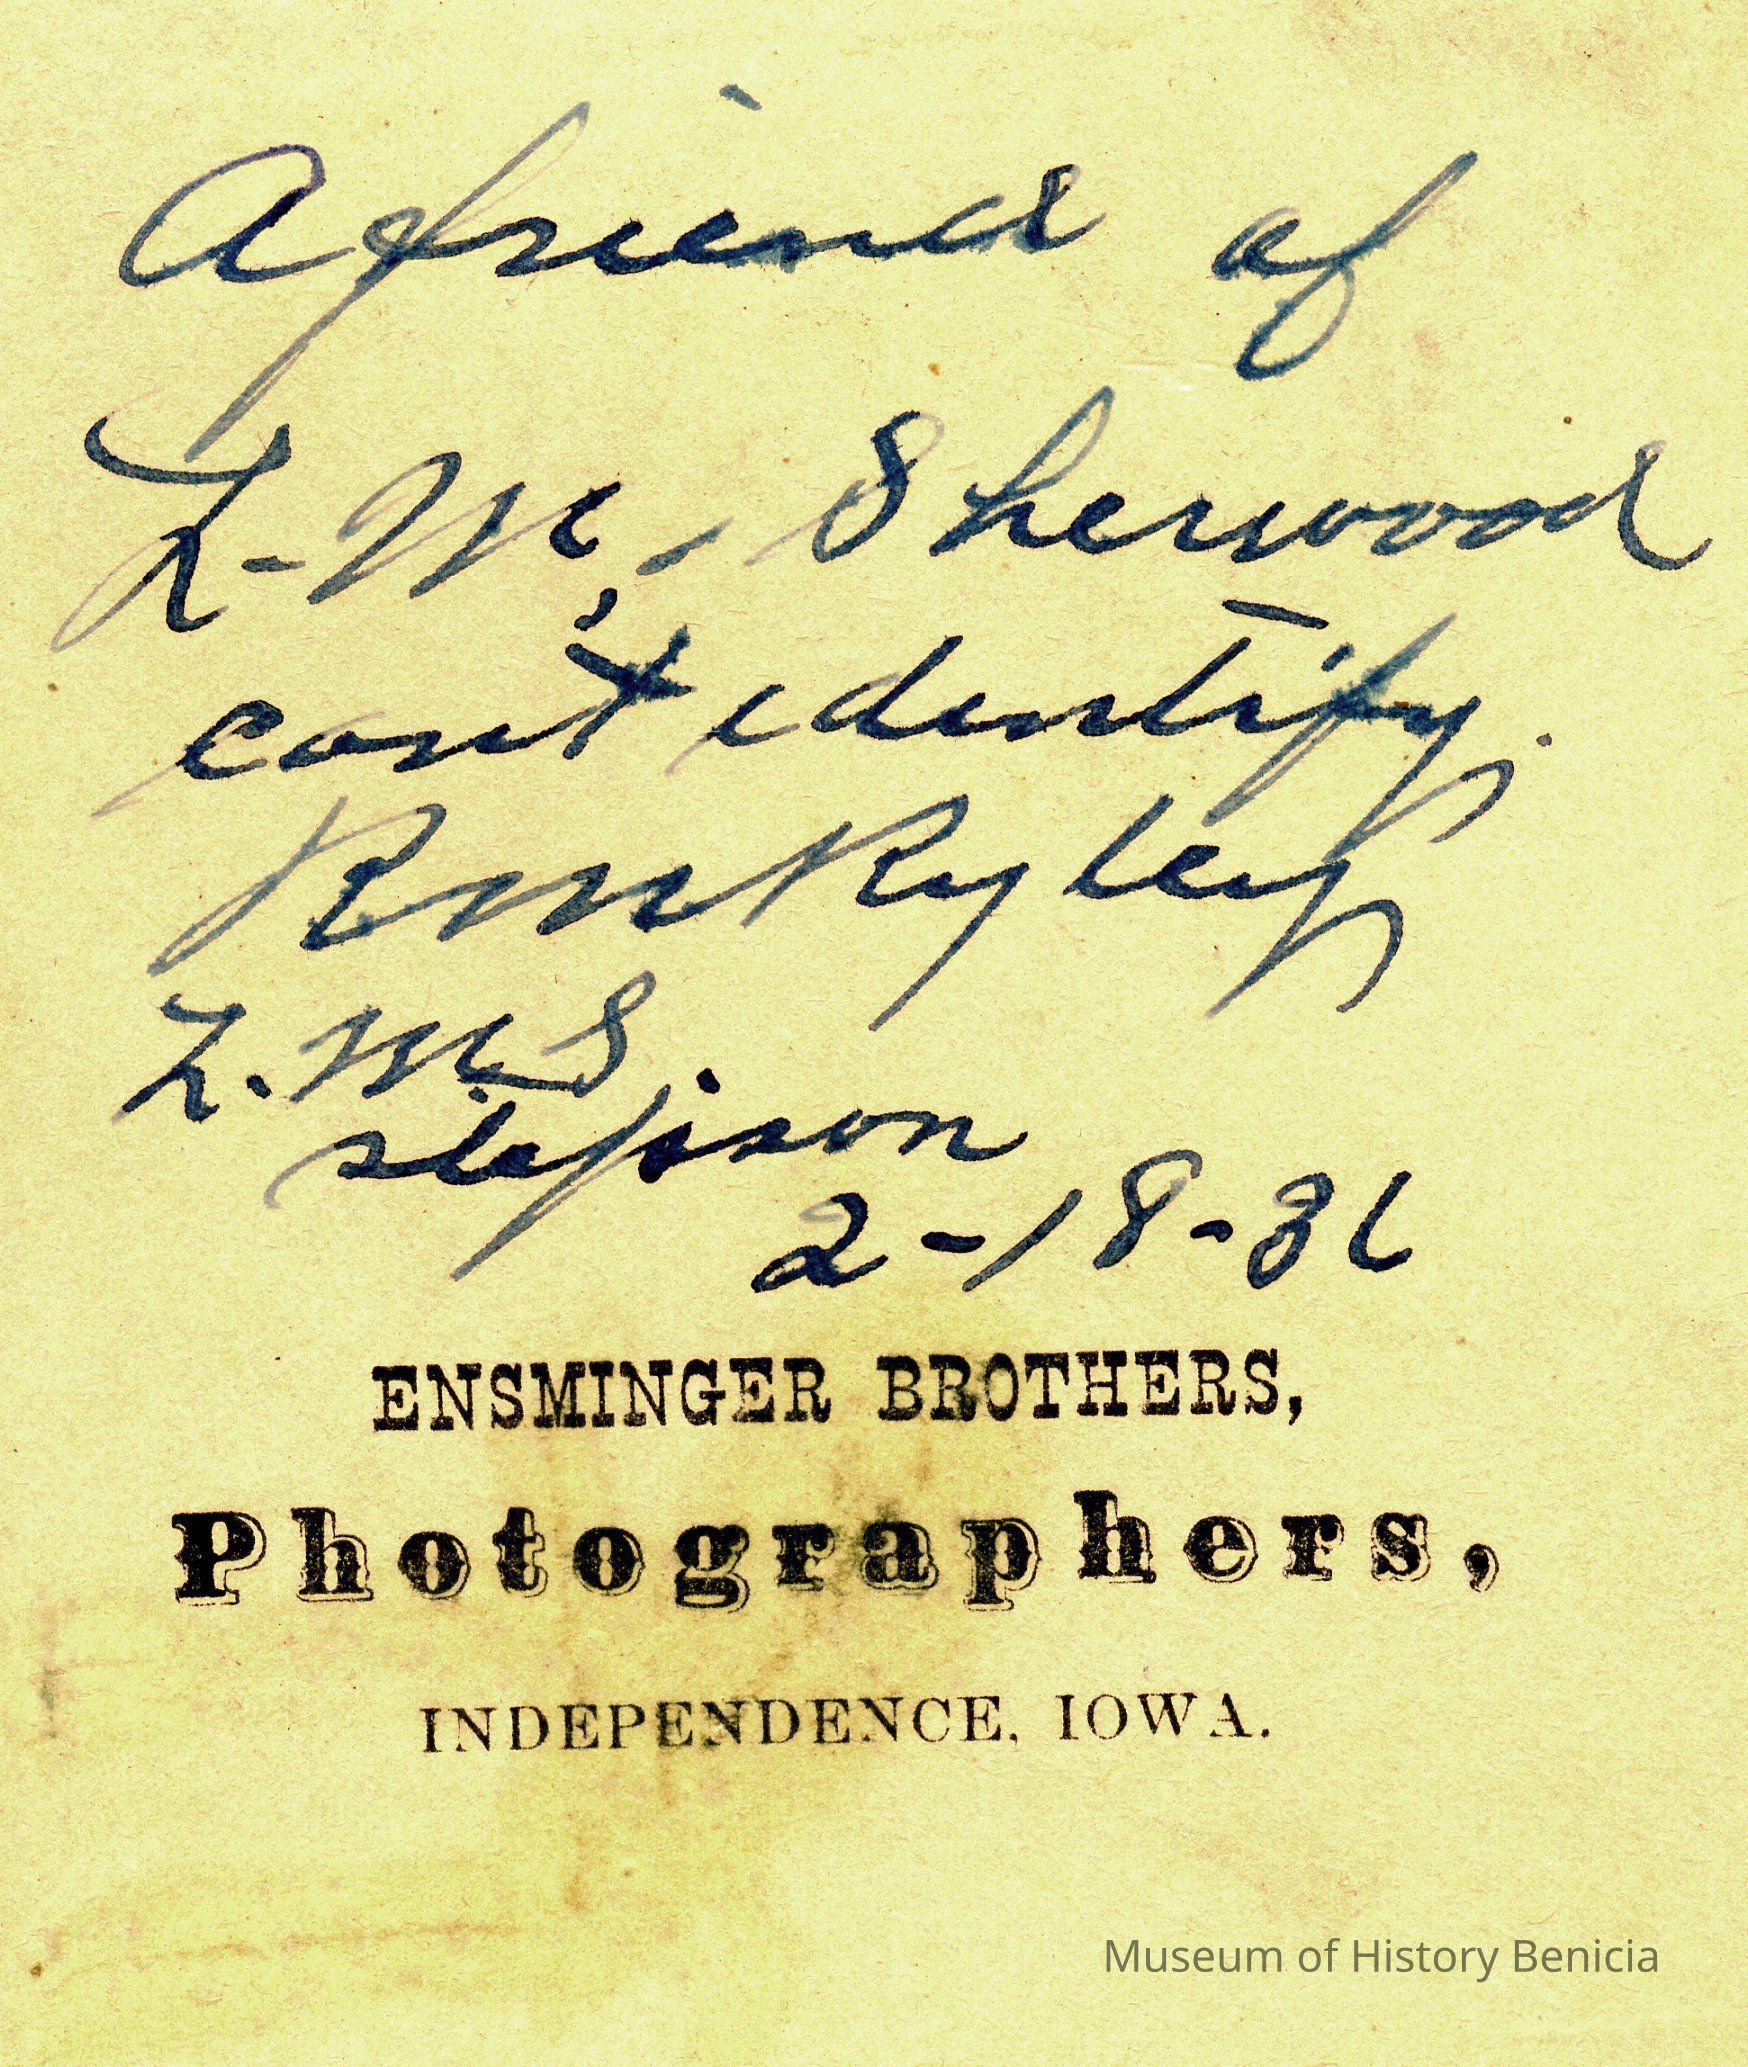 A friend of
L. M. Sherwood
can't identify.
Rm Ryley
L. M. S.
stepson
2-18-36
ENSMINGER BROTHERS,
Photographers,
INDEPENDENCE, IOWA.
Museum of History Benicia